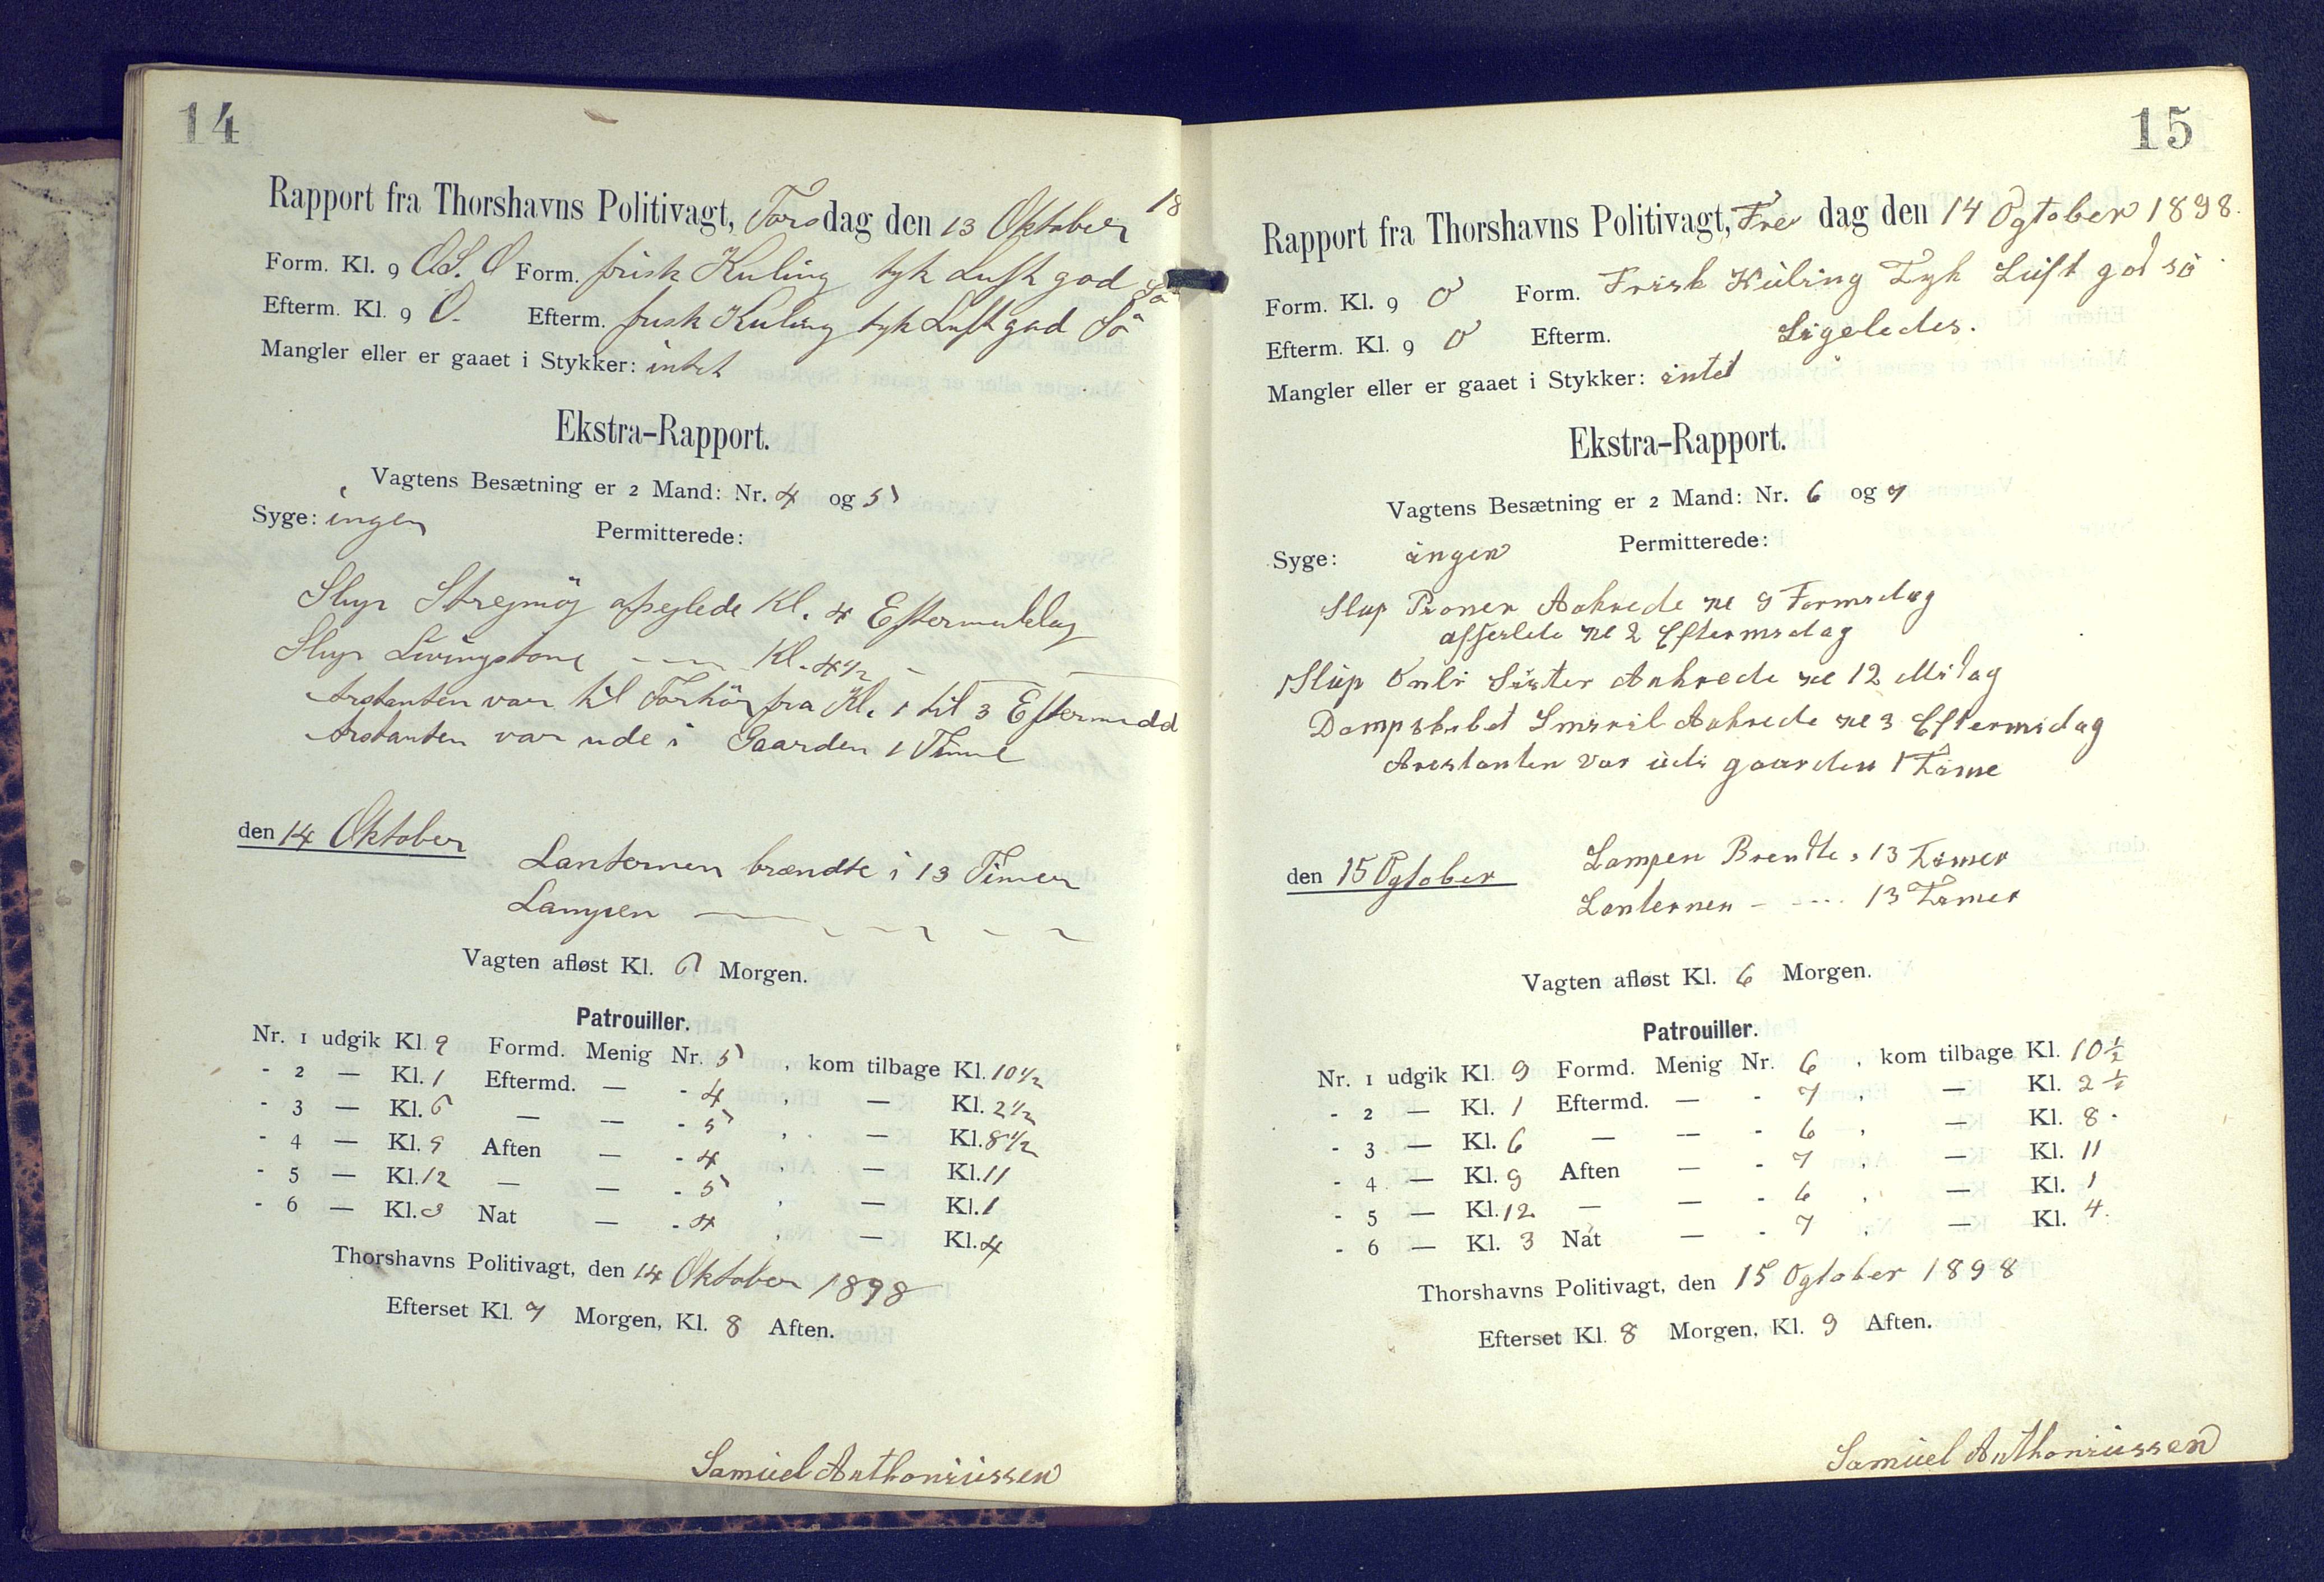 14
Rapport fra Thorshavns Politivagt, Torsdag den 13 Oktober 18
Form. Kl. 9 OS. O Form. frisk Kuling tyk Luft god Sö
Efterm. Kl. 9 O. Efterm. frisk Kuling tyk Luft god Sö
Mangler eller er gaaet i Stykker: intet
Ekstra-Rapport.
Vagtens Besætning er 2 Mand: Nr. 4 og 5
Syge: ingen Permitterede:
Slup Strejmöj afsejlede Kl. 4 Eftermiddag
Slup Livingstone — — Kl. 4½ — —
Arstanten var til Forhör fra Kl. 1 til 3 Eftermidd
Arstanten var ude i Gaarden 1 Time
den 14 Oktober
Lanternen brændte i 13 Timer
Lampen — — — — — —
Vagten afløst Kl. 6 Morgen.
Patrouiller.
Nr. 1 udgik Kl. 9 Formd. Menig Nr. 5, kom tilbage Kl. 10½
- 2 — Kl. 1 Eftermd. — - 4, — Kl. 2½
- 3 — Kl. 6 — — - 5, — Kl. 8½
- 4 — Kl. 9 Aften — - 4, — Kl. 11
- 5 — Kl. 12 — — - 5, — Kl. 1
- 6 — Kl. 3 Nat — - 4, — Kl. 4
Thorshavns Politivagt, den 14 Oktober 1898
Efterset Kl. 7 Morgen, Kl. 8 Aften.
Samüel Anthoniüssen
15
Rapport fra Thorshavns Politivagt, Fre dag den 14 Ogtober 1898.
Form. Kl. 9 O Form. Frisk Küling Tyk Lüft god sö
Efterm. Kl. 9 O Efterm. Ligeledes.
Mangler eller er gaaet i Stykker: intet
Ekstra-Rapport.
Vagtens Besætning er 2 Mand: Nr. 6 og 7
Syge: ingen Permitterede:
Slup Pioner Ankrede Kl 9 Formsdag
Kl 2 Eftermsdag
1 Slüp Onli Sister Ankrede Kl 12 Midag
Dampskibet Smiril Ankrede Kl 3 Eftermidag
Arestanten var üdi gaarden 1 Time
den 15 Ogtober
Lampen Brendte i 13 Timer
Lanternen - - - - 13 Timer
Vagten afløst Kl. 6 Morgen.
Patrouiller.
Nr. 1 udgik Kl. 9 Formd. Menig Nr. 6, kom tilbage Kl. 10½
- 2 — Kl. 1 Eftermd. — - 7, — Kl. 2½
- 3 — Kl. 6 — — - 6, — Kl. 8 -
- 4 — Kl. 9 Aften — - 7, — Kl. 11
- 5 — Kl. 12 — — - 6, — Kl. 1
- 6 — Kl. 3 Nat — - 7, — Kl. 4.
Thorshavns Politivagt, den 15 Ogtober 1898
Efterset Kl. 8 Morgen, Kl. 9 Aften.
Samüel Anthoniüssen